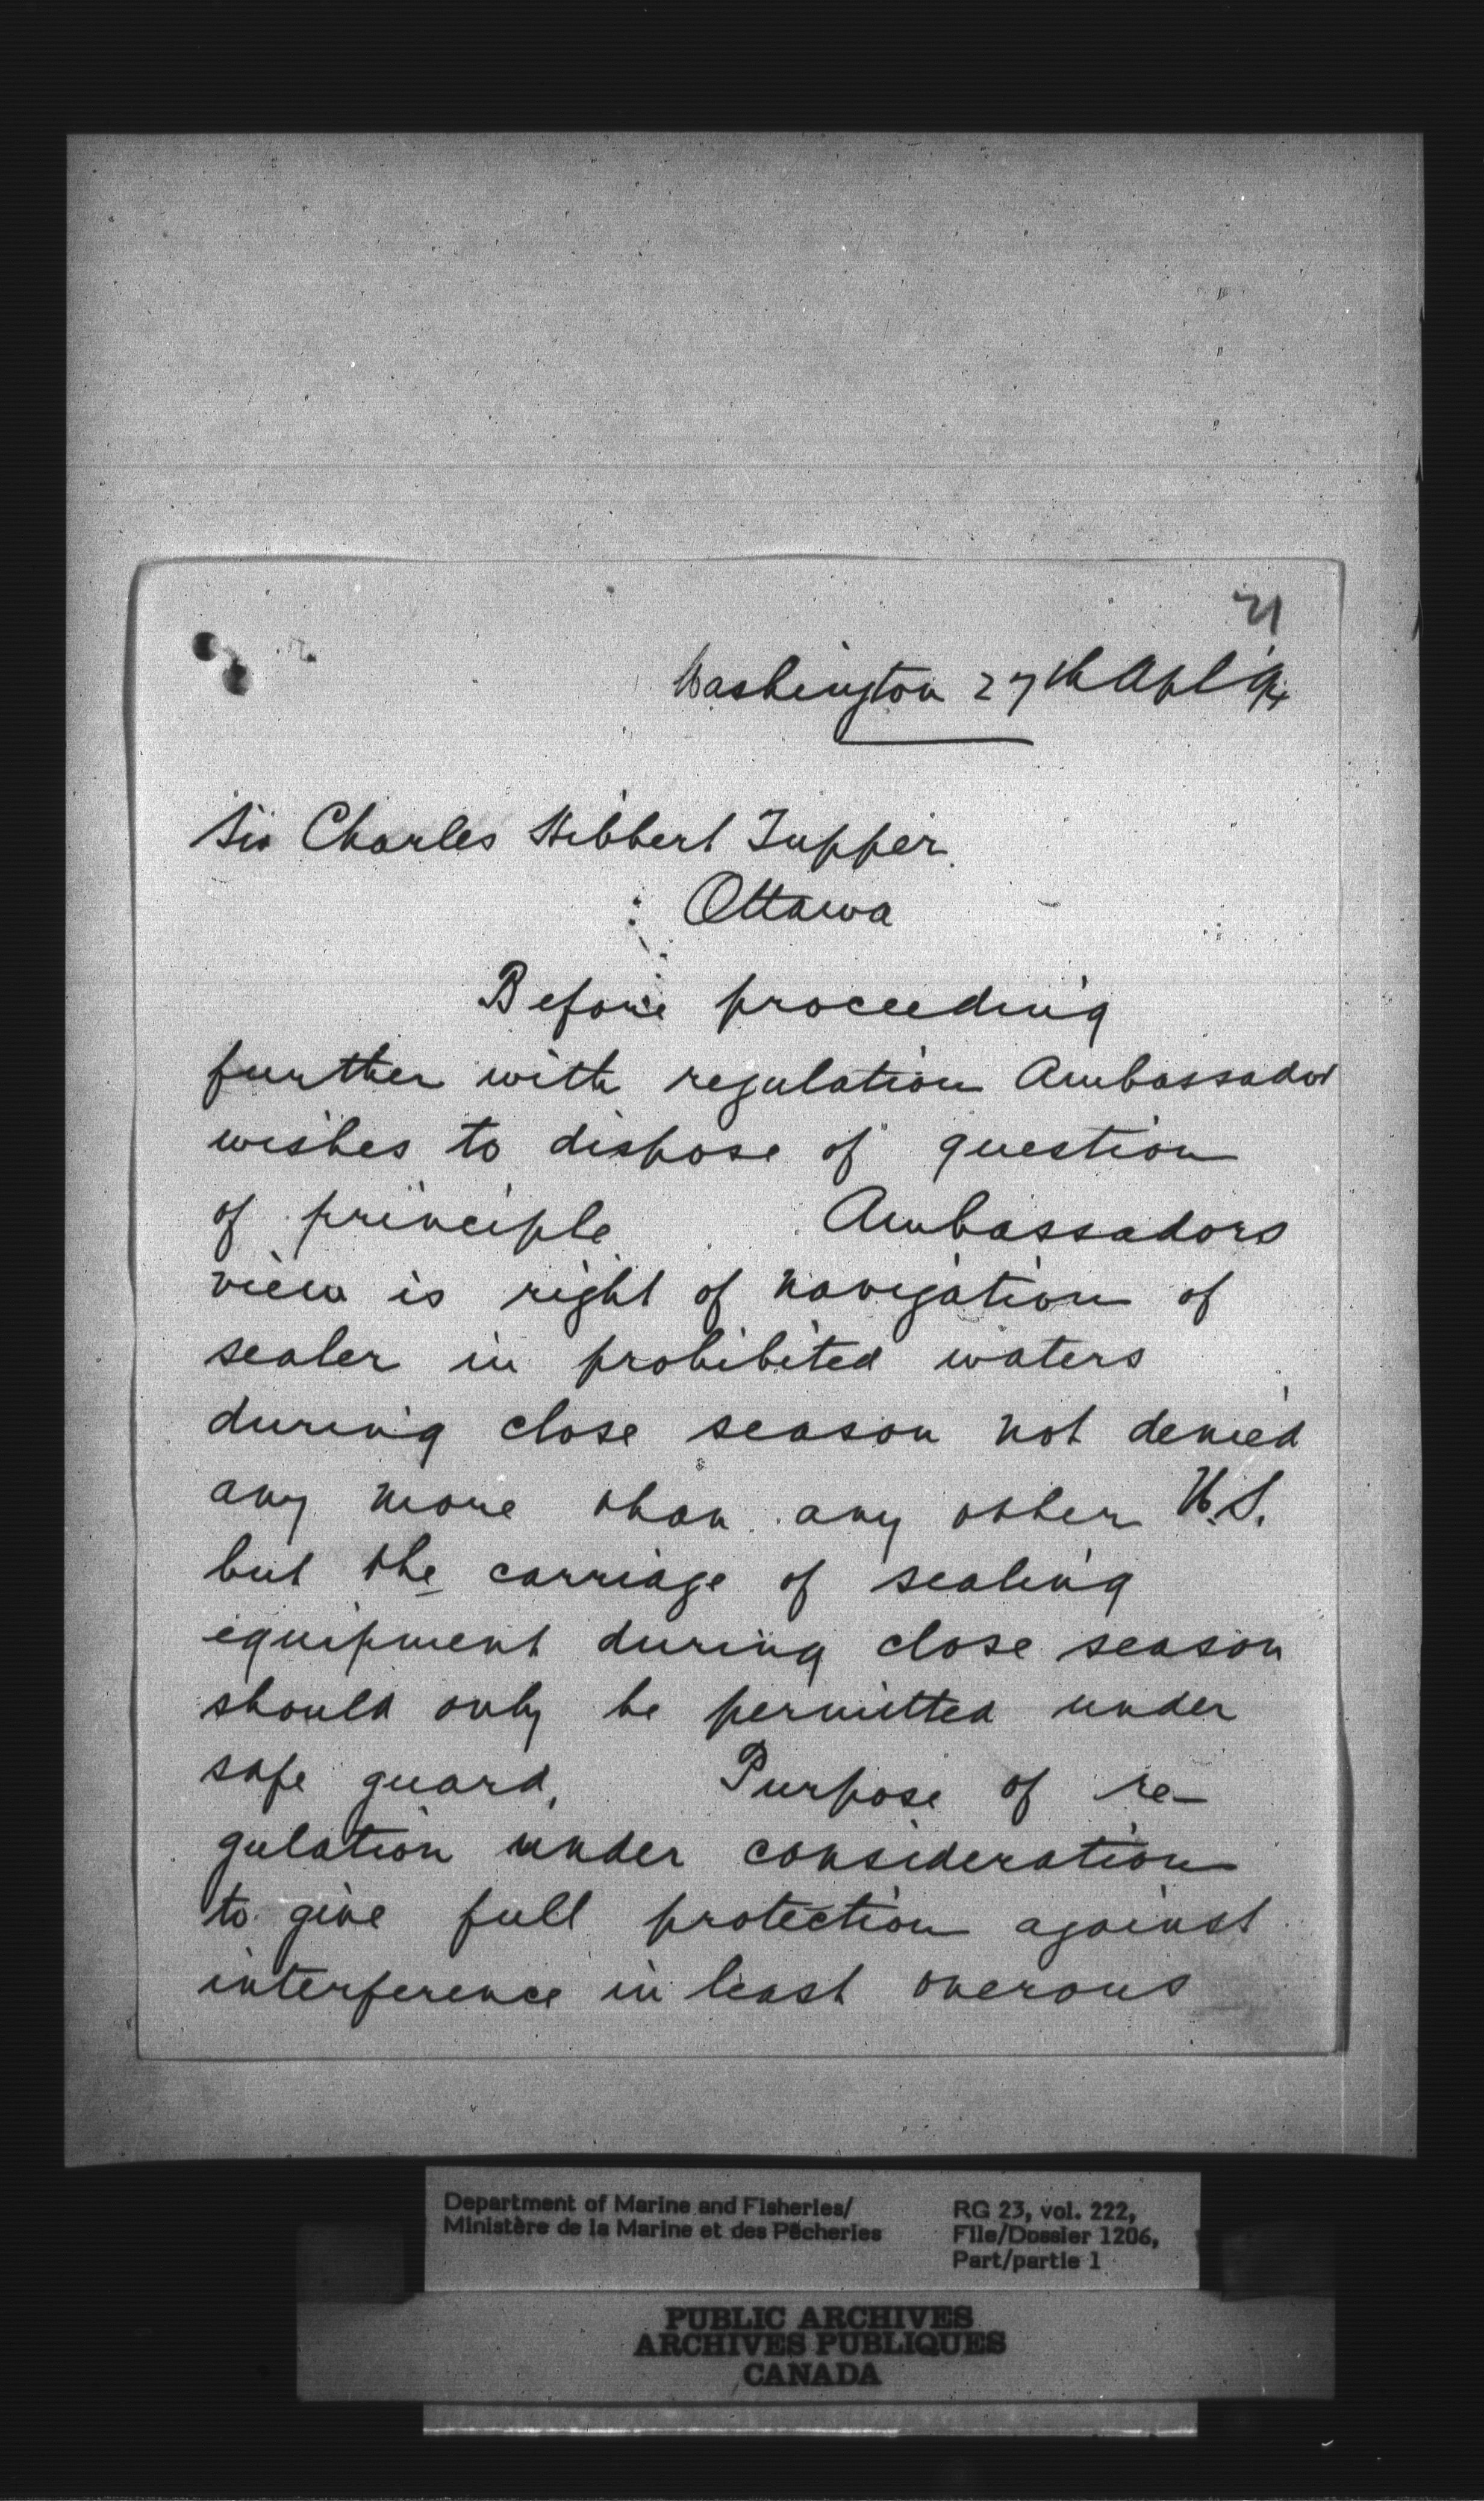 21
Washington 27th Apl 94
Sir Charles Hibbert Tupper.
Ottawa
Before proceeding
further with regulation Ambassador
wishes to dispose of question
of principle. Ambassadors
view is right of navigation of
sealer in prohibited waters
during close season not denied
any more than any other
but the carriage of sealing
equipment during close season
should only be permitted under
safe guard. Purpose of re-
gulation under consideration
to give full protection against
interference in least onerous
Department of Marine and Fisheries/
Ministère de la Marine et des Pêcheries
RG 23, vol. 222,
File/Dossier 1206,
Part/partie 1
PUBLIC ARCHIVES
ARCHIVES PUBLIQUES
CANADA